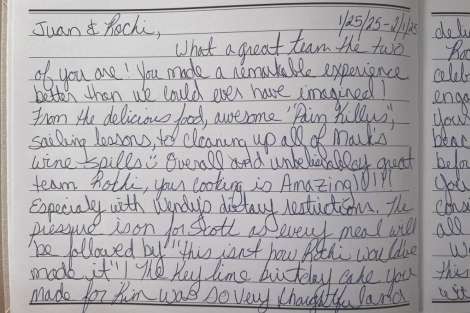 Juan & Rochi, 1/25/25-2/1/25
What a great team the two
of you are! You made a remarkable experience
better than we could ever have imagined!
From the delicious food, awesome "Pain Killers",
sailing lessons, to cleaning up all of Mark's
wine spills :) Overall and unbelievabley great
team Rochi, your cooking is Amazing!!!!
Especialy with Wendy's dietary restrictions. The
pressure is on for Scott as every meal will
be followed by "this isn't how Rochi would have
made it"! The key lime birthday cake you
made for Kim was so very thoughtful and